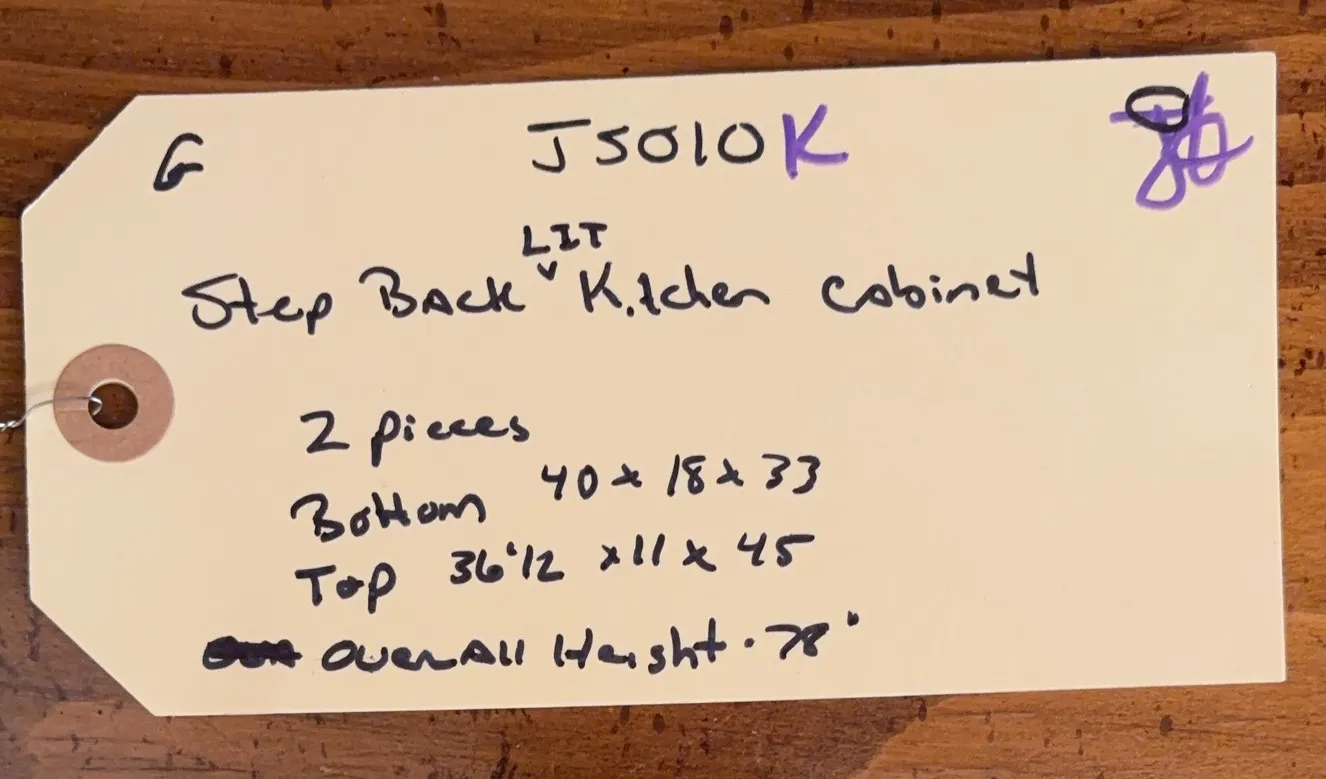 G JS010K
LIT
Step Back Kitchen cabinet
2 pieces
Bottom 40 x 18 x 33
Top 36 1/2 x 11 x 45
Overall Height - 78"